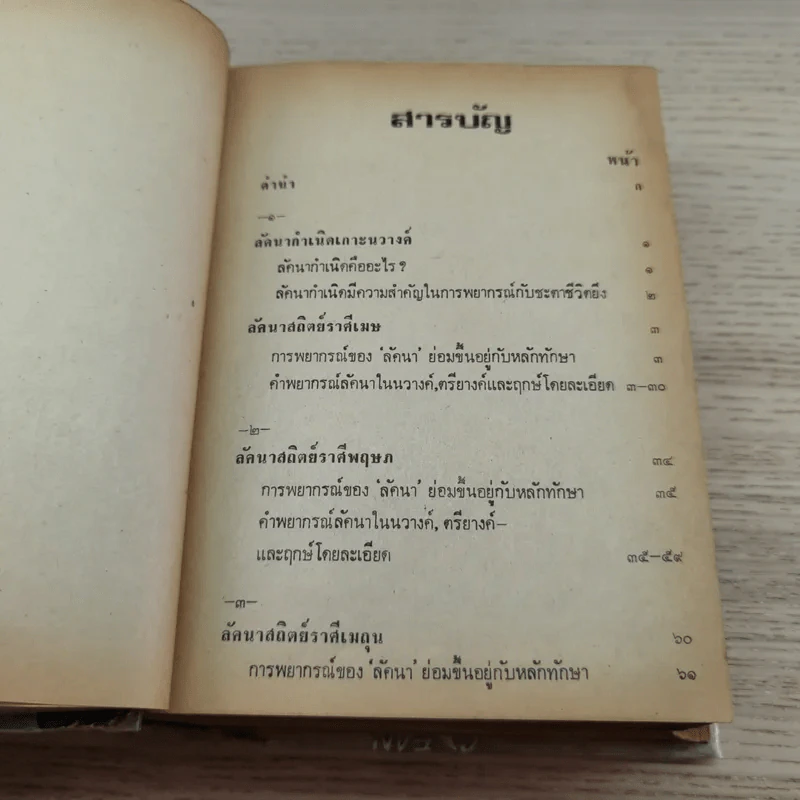 สารบัญ
หน้า
คำนำ ก
—๑—
ลัคนากำเนิดเกาะนวางค์ ๑
ลัคนากำเนิดคืออะไร ? ๑
ลัคนากำเนิดมีความสำคัญในการพยากรณ์กับชะตาชีวิตยิ่ง ๒
ลัคนาสถิตย์ราศีเมษ ๓
การพยากรณ์ของ ‘ลัคนา’ ย่อมขึ้นอยู่กับหลักทักษา ๓
คำพยากรณ์ลัคนาในนวางค์,ตรียางค์และฤกษ์โดยละเอียด ๓—๓๐
—๒—
ลัคนาสถิตย์ราศีพฤษภ ๓๔
การพยากรณ์ของ ‘ลัคนา’ ย่อมขึ้นอยู่กับหลักทักษา ๓๕
คำพยากรณ์ลัคนาในนวางค์, ตรียางค์—
และฤกษ์โดยละเอียด ๓๕—๕๙
—๓—
ลัคนาสถิตย์ราศีเมถุน ๖๐
การพยากรณ์ของ ‘ลัคนา’ ย่อมขึ้นอยู่กับหลักทักษา ๖๑